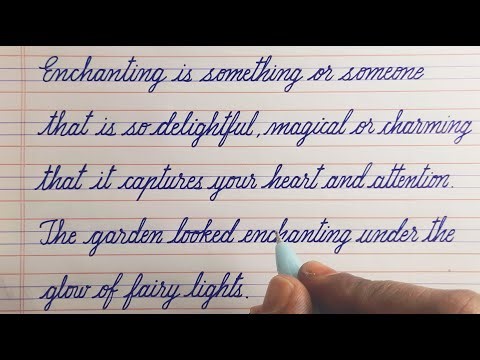 Enchanting is something or someone
that is so delightful, magical or charming
that it captures your heart and attention.
The garden looked enchanting under the
glow of fairy lights.